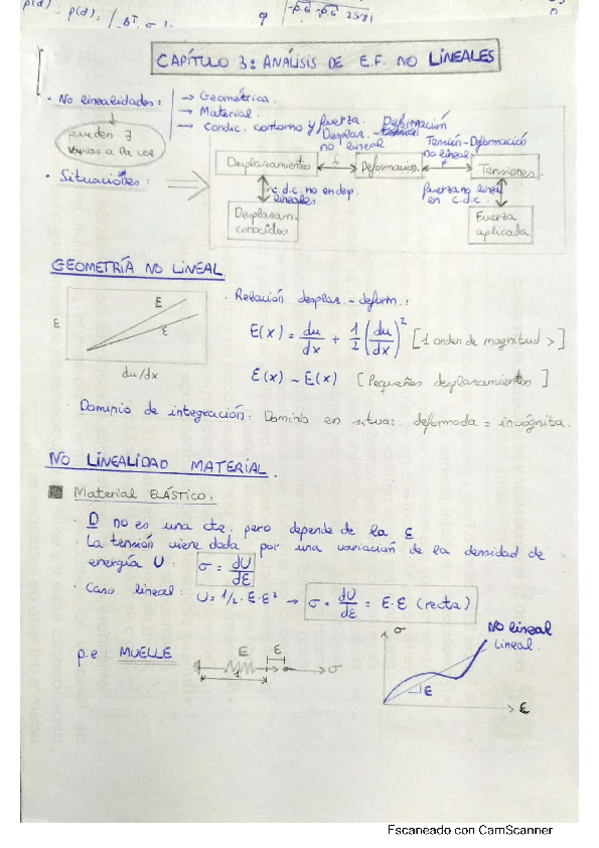 CAPÍTULO 3: ANÁLISIS DE E.F. NO LINEALES
· No linealidades:
→ Geométrica.
→ Material.
→ Condic. contorno y fuerza.
pueden ∃
varias a la vez
· Situaciones:
Desplaz.
no lineal
Deformación
Tensión-Deformación
no lineal
Desplazamiento
Deformación.
Tensiones.
c.d.c. no en dep.
lineales.
fuerza no lineal
en c.d.c.
Desplazam.
conocidos
Fuerza
aplicada
GEOMETRÍA NO LINEAL
E
ε
ε
du/dx
· Relación desplaz. - deform.:
E(x) = du/dx + 1/2 (du/dx)² [1 orden de magnitud >]
ε(x) ~ E(x) [Pequeños desplazamientos]
Dominio de integración: Dominio en situac. deformada = incógnita.
NO LINEALIDAD MATERIAL.
Material ELÁSTICO:
· D no es una cte. pero depende de la ε
· La tensión viene dada por una variación de la densidad de
energía U: σ = dU/dε
· Caso lineal: U = 1/2 · E · ε² → σ = dU/dε = E · ε (recta)
p.e: MUELLE
E
ε
1
σ
σ
NO lineal
Lineal.
E
ε
Escaneado con CamScanner